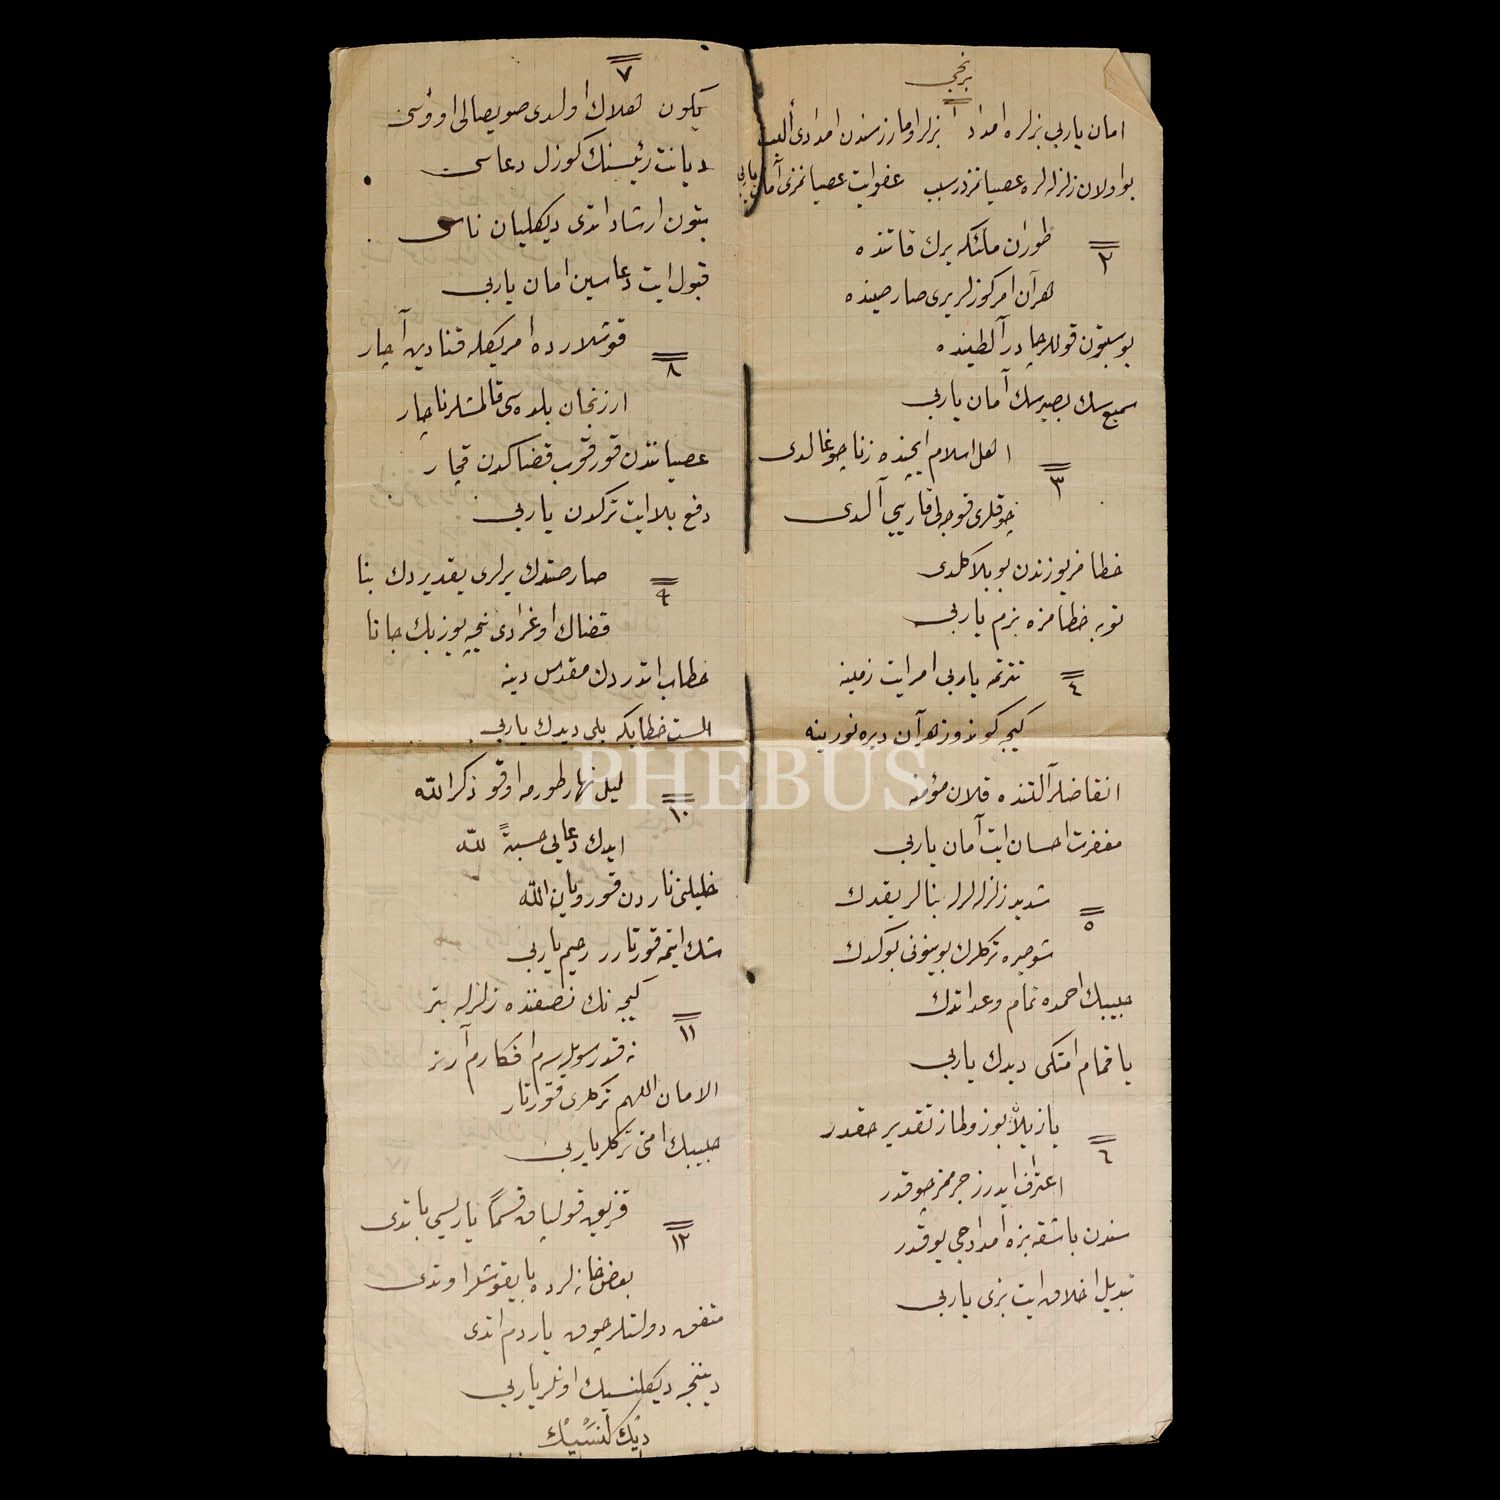 برنجی
١
امان یاربی بزلره امداد بزلر اومارز سندن امدادی ألبت
بو اولان زلزله لره عصیانمزدر سبب عفو ایت عصیانمزی آمان یاربی
٢
طوران ملئکه یرك قاتنده
هر آن امر کوزلر یری صارصینده
بوسبتون قوللر چادر آلطینده
سمیع سك بصیر سك آمان یاربی
٣
اهل اسلام ایچنده زنا چوغالدی
چوقلری قوجه لی قاریی آلدی
خطامز یوزندن بو بلا کلدی
توبه خطامزه بزم یاربی
٤
تترتمه یاربی امر ایت زمینه
کیجه کوندوز هر آن دیره نورینه
انقاضلر آلتنده قلان مؤمنه
مغفرت احسان ایت آمان یاربی
٥
شدید زلزله لرله بنالر یقدك
شوجیره ترکلرك بوینونی بوکدك
حبیبك احمده تمام وعد اتدك
یا محمد امتکی دیدك یاربی
٦
یازیلان بوزولماز تقدیر حقدر
اعتراف ایدرز جرممز چوقدر
سندن باشقه بزه امدادجی یوقدر
تبدیل اخلاق ایت بزی یاربی
٧
یکون هلاك اولدی صویصالی اووسی
دیانت رئیسنك کوزل دعاسی
بتون ارشاد اتدی دیکلیان ناسی
قبول ایت دعاسین امان یاربی
٨
قوشلارده امریکله قنادین آچار
ارزنجان بلده سی قالمشلر ناچار
عصیاندن قورقوب قضاکدن قچار
دفع بلا ایت ترکدن یاربی
٩
صارصندك یرلری یقدیردك بنا
قضاك اوغرادی نیچه یوز بك جانا
خطاب اتدردك مقدس دینه
الست خطابکه بلی دیدك یاربی
١٠
لیل نهار طورمه اوقو ذکر الله
ایدك دعایی حسبةً لله
خلیلنی ناردن قورویان الله
شك ایتمه قورتارر رحیم یاربی
١١
کیجه نك نصفنده زلزله بتر
نه قدر سویلیسم افکارم آرتر
الامان اللهم ترکلری قورتار
حبیبك امتی ترکلر یاربی
١٢
قزیلی قولیاق قسمًا یاریسی باتدی
بعض خانه لرده بایقوشلر اوتدی
متفق دولتلر چوق یاردم اتدی
دیننجه دیکلنسیك اونلر یاربی
دیك لَنسیْنْك
PHEBUS